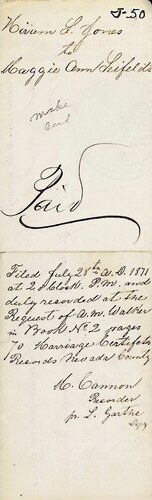 J-50
Hiram L. Jones
to
Maggie Ann Seifeldt
Paid
Filed July 28th A.D. 1871
at 2 o'clock P.M. and
duly recorded at the
Request of A. M. Walker
in Book No 2 pages
70 Marriage Certificates
Records Nevada County
M. Cannon
Recorder
pr. L. Garthe
Dpy